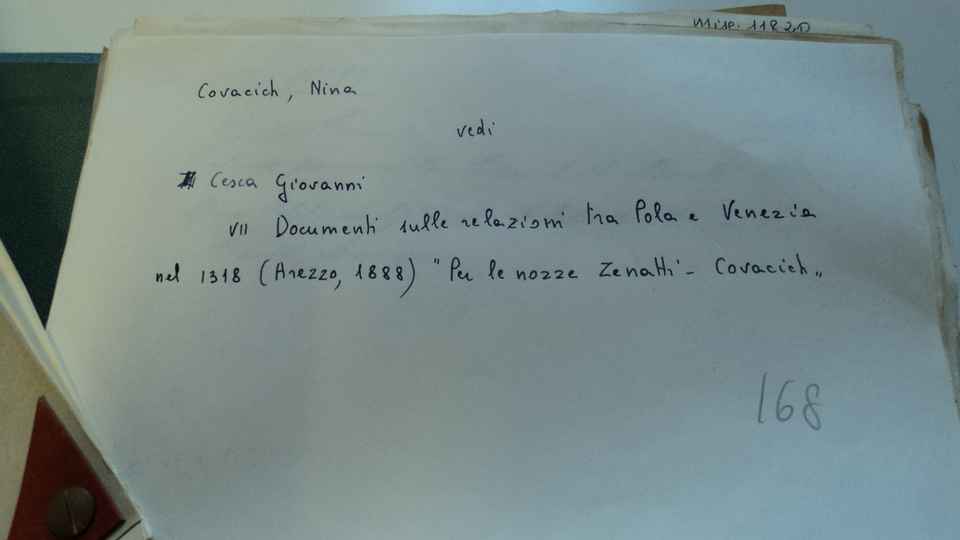 Misc. 1182,D
Covacich, Nina
vedi
Cesca Giovanni
VII Documenti sulle relazioni tra Pola e Venezia
nel 1318 (Arezzo, 1888) "Per le nozze Zenatti - Covacich„
168